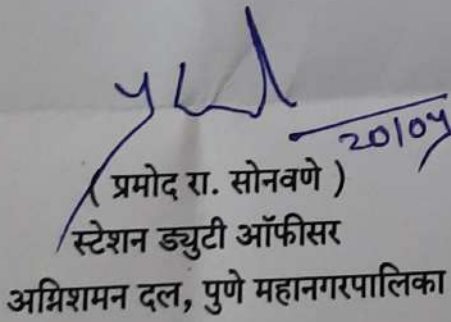 20/04
( प्रमोद रा. सोनवणे )
स्टेशन ड्युटी ऑफीसर
अग्निशमन दल, पुणे महानगरपालिका